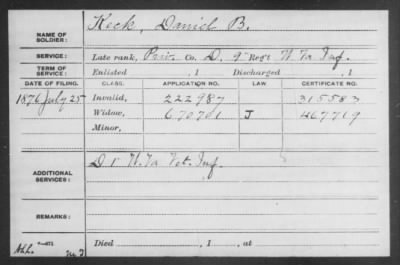 NAME OF SOLDIER: Keck, Daniel B.
SERVICE: Late rank, Priv. Co. D, 9" Reg't W. Va Inf.
TERM OF SERVICE: Enlisted , 1 Discharged , 1
DATE OF FILING. CLASS. APPLICATION NO. LAW. CERTIFICATE NO.
1876 July 25 Invalid, 222987 315583
Widow, 670701 J 467719
Minor,
ADDITIONAL SERVICES: D. 1" W. Va Vet. Inf.
REMARKS:
Died , 1 , at